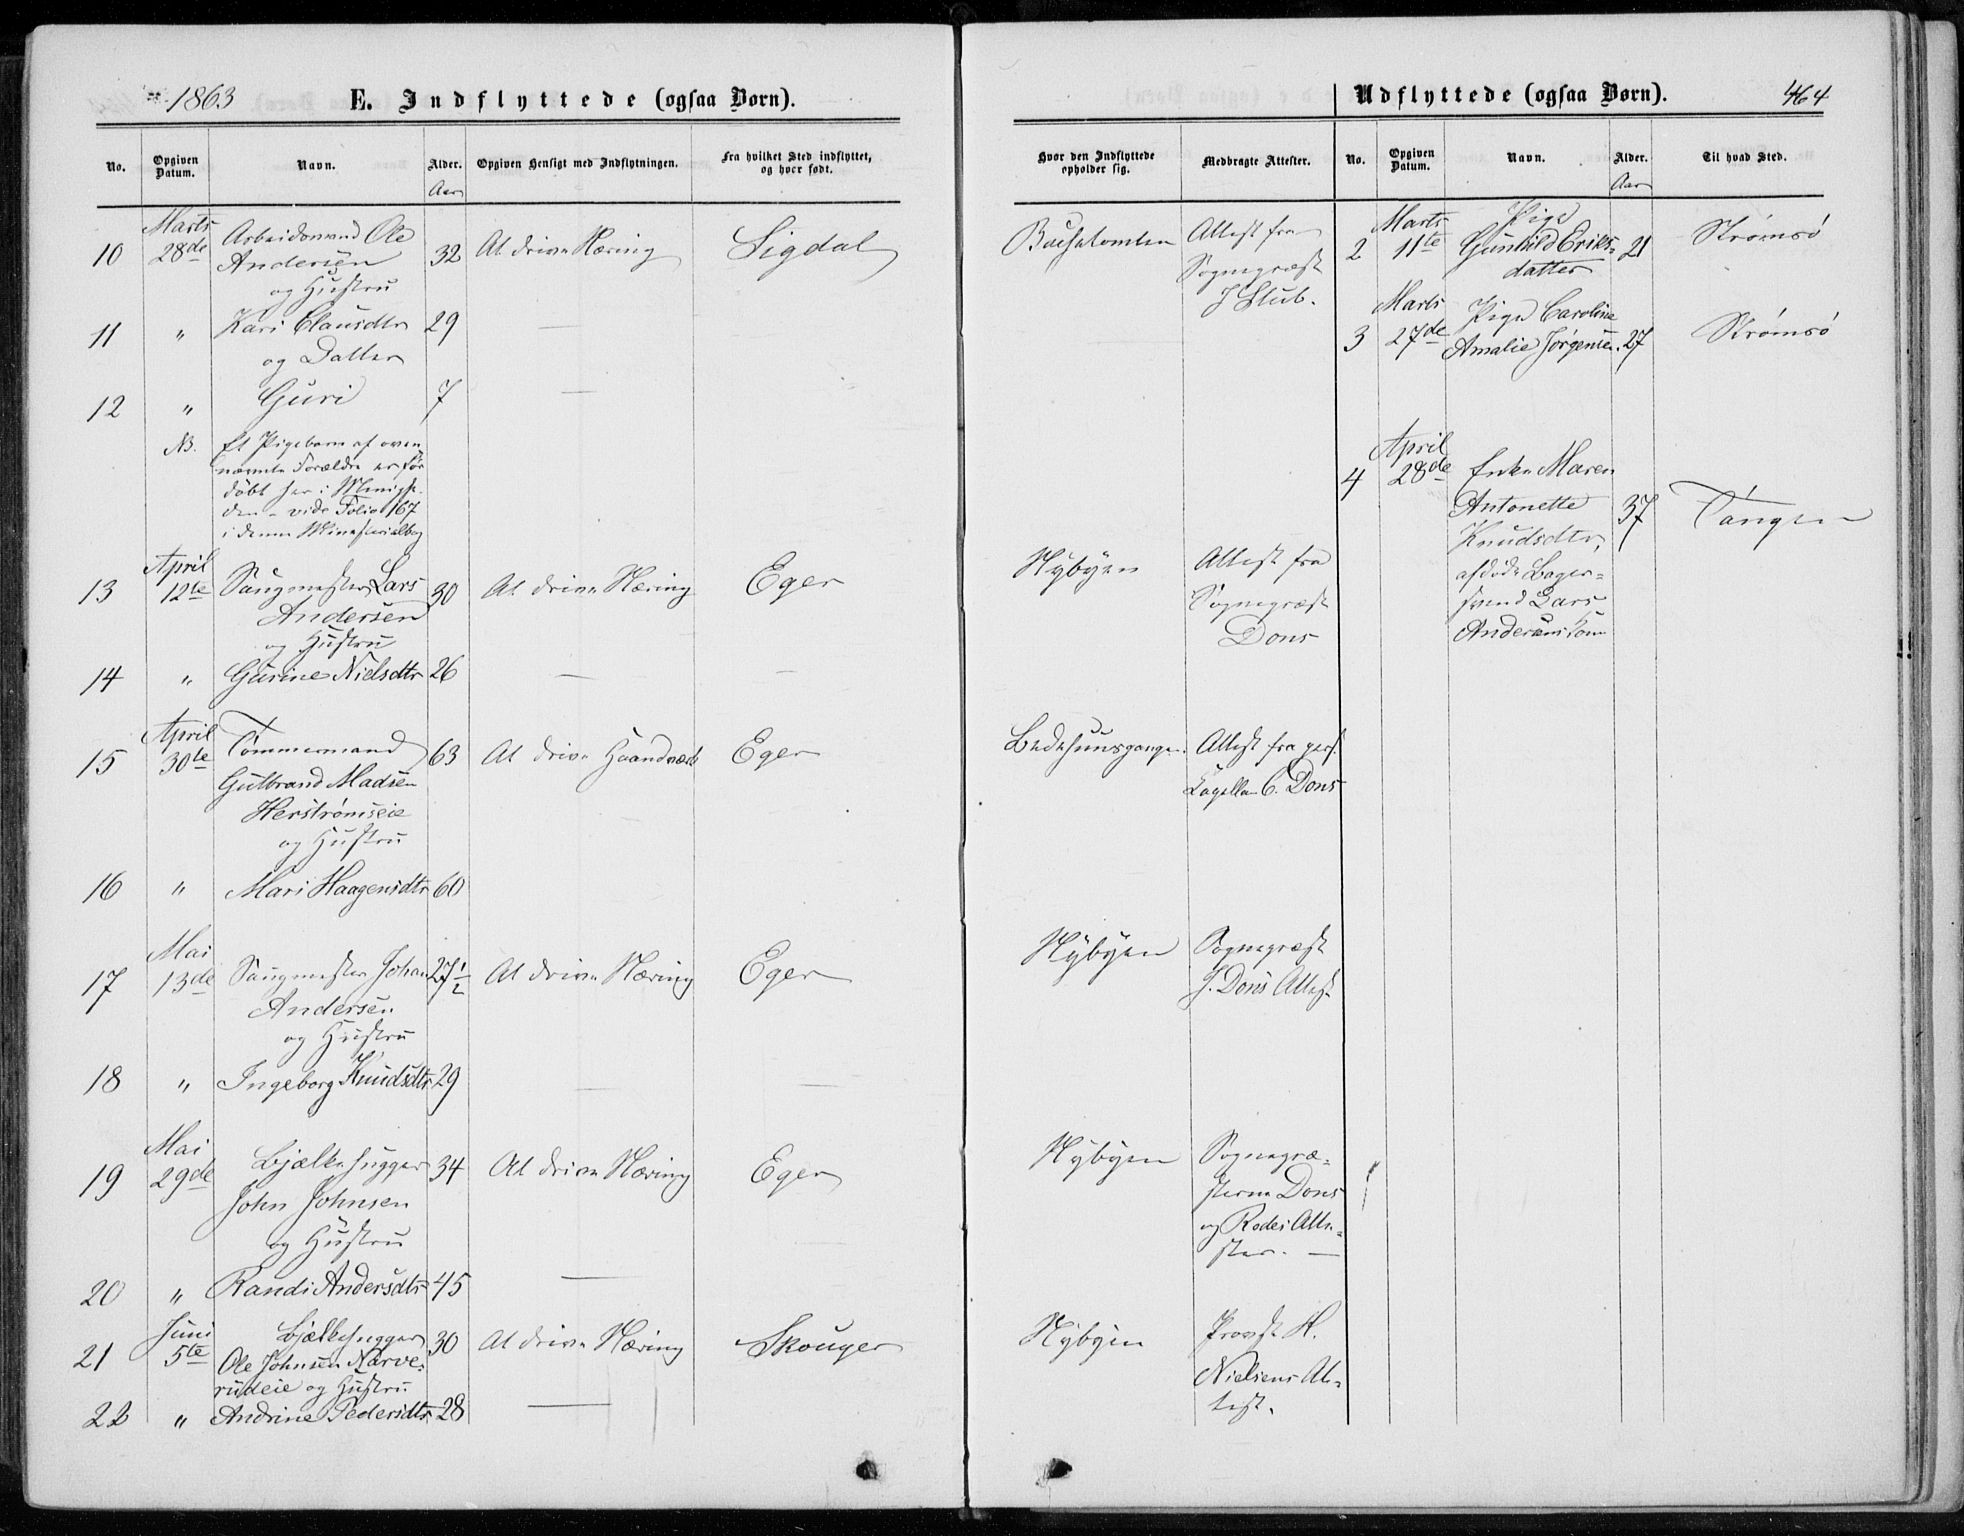 1863
E. Indflyttede (ogsaa Børn).
No.
Opgiven
Datum.
Navn.
Alder.
Aar
Opgiven Hensigt med Indflytningen.
Fra hvilket Sted indflyttet,
og hvor født.
Marts
10 28de Arbeidsmand Ole 32 At drive Næring Sigdal
Andersen
og Hustru
11 " Kari Clausdtr 29 —
og Datter
12 " Guri 7 —
NB. Et Pigebarn af oven
nævnte Forældre er før
døbt her i Menighe
den - vide Folio 167
i denne Ministerialbog
April
13 12te Saugmester Lars 30 At drive Næring Eger
Andersen
og Hustru
14 " Gurine Nielsdtr 26 — —
April
15 30te Tømmermand 63 At drive Haandværk Eger
Gulbrand Madsen
Herstrømseie
og Hustru
16 " Mari Haagensdtr 60
Mai
17 13de Saugmester Johan 27½ At drive Næring Eger
Andersen
og Hustru
18 " Ingeborg Knudsdtr 29 — —
Mai
19 29de Bjælkehugger 34 At drive Næring Eger
John Johnsen
og Hustru
20 " Randi Andersdtr 45 —
Juni
21 5te Bjælkehugger 30 At drive Næring Skouger
Ole Johnsen Narve-
rudeie og Hustru
22 " Andrine Pedersdtr 28 —
Udflyttede (ogsaa Børn).
464
Hvor den Indflyttede
opholder sig.
Medbragte Attester.
No.
Opgiven
Datum.
Navn.
Alder.
Aar
Til hvad Sted.
Attest fra
Sognepræst
J Stub.
Marts
2 11te Pige
Gunhild Eriks- 21 Strømsø
datter
Marts
3 27de Pige Caroline
Amalie Jørgensen. 27 Strømsø
April
4 28de Enke Maren
Antonette 37 Tangen
Knudsdtr,
afdøde Bager-
svend Lars
Andersens Kone
Nybyen Attest fra
Sognepræst
Dons
Bedehuusgangen. Attest fra pers.
Capellan C. Dons
Nybyen Sognepræst
J. Dons Attest
Nybyen Sognepræ-
sterne Dons
og Rodes Atte-
ster. —
Nybyen Provst H.
Nielsens At-
test.